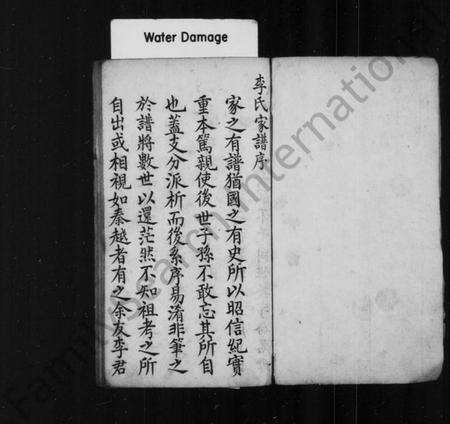 Water Damage
李氏家譜序
家之有譜猶國之有史所以昭信紀實
重本篤親使後世子孫不敢忘其所自
也蓋支分派析而後系序易淆非筆之
於譜將數世以還茫然不知祖考之所
自出或相視如秦越者有之余友李君
FamilySearch International